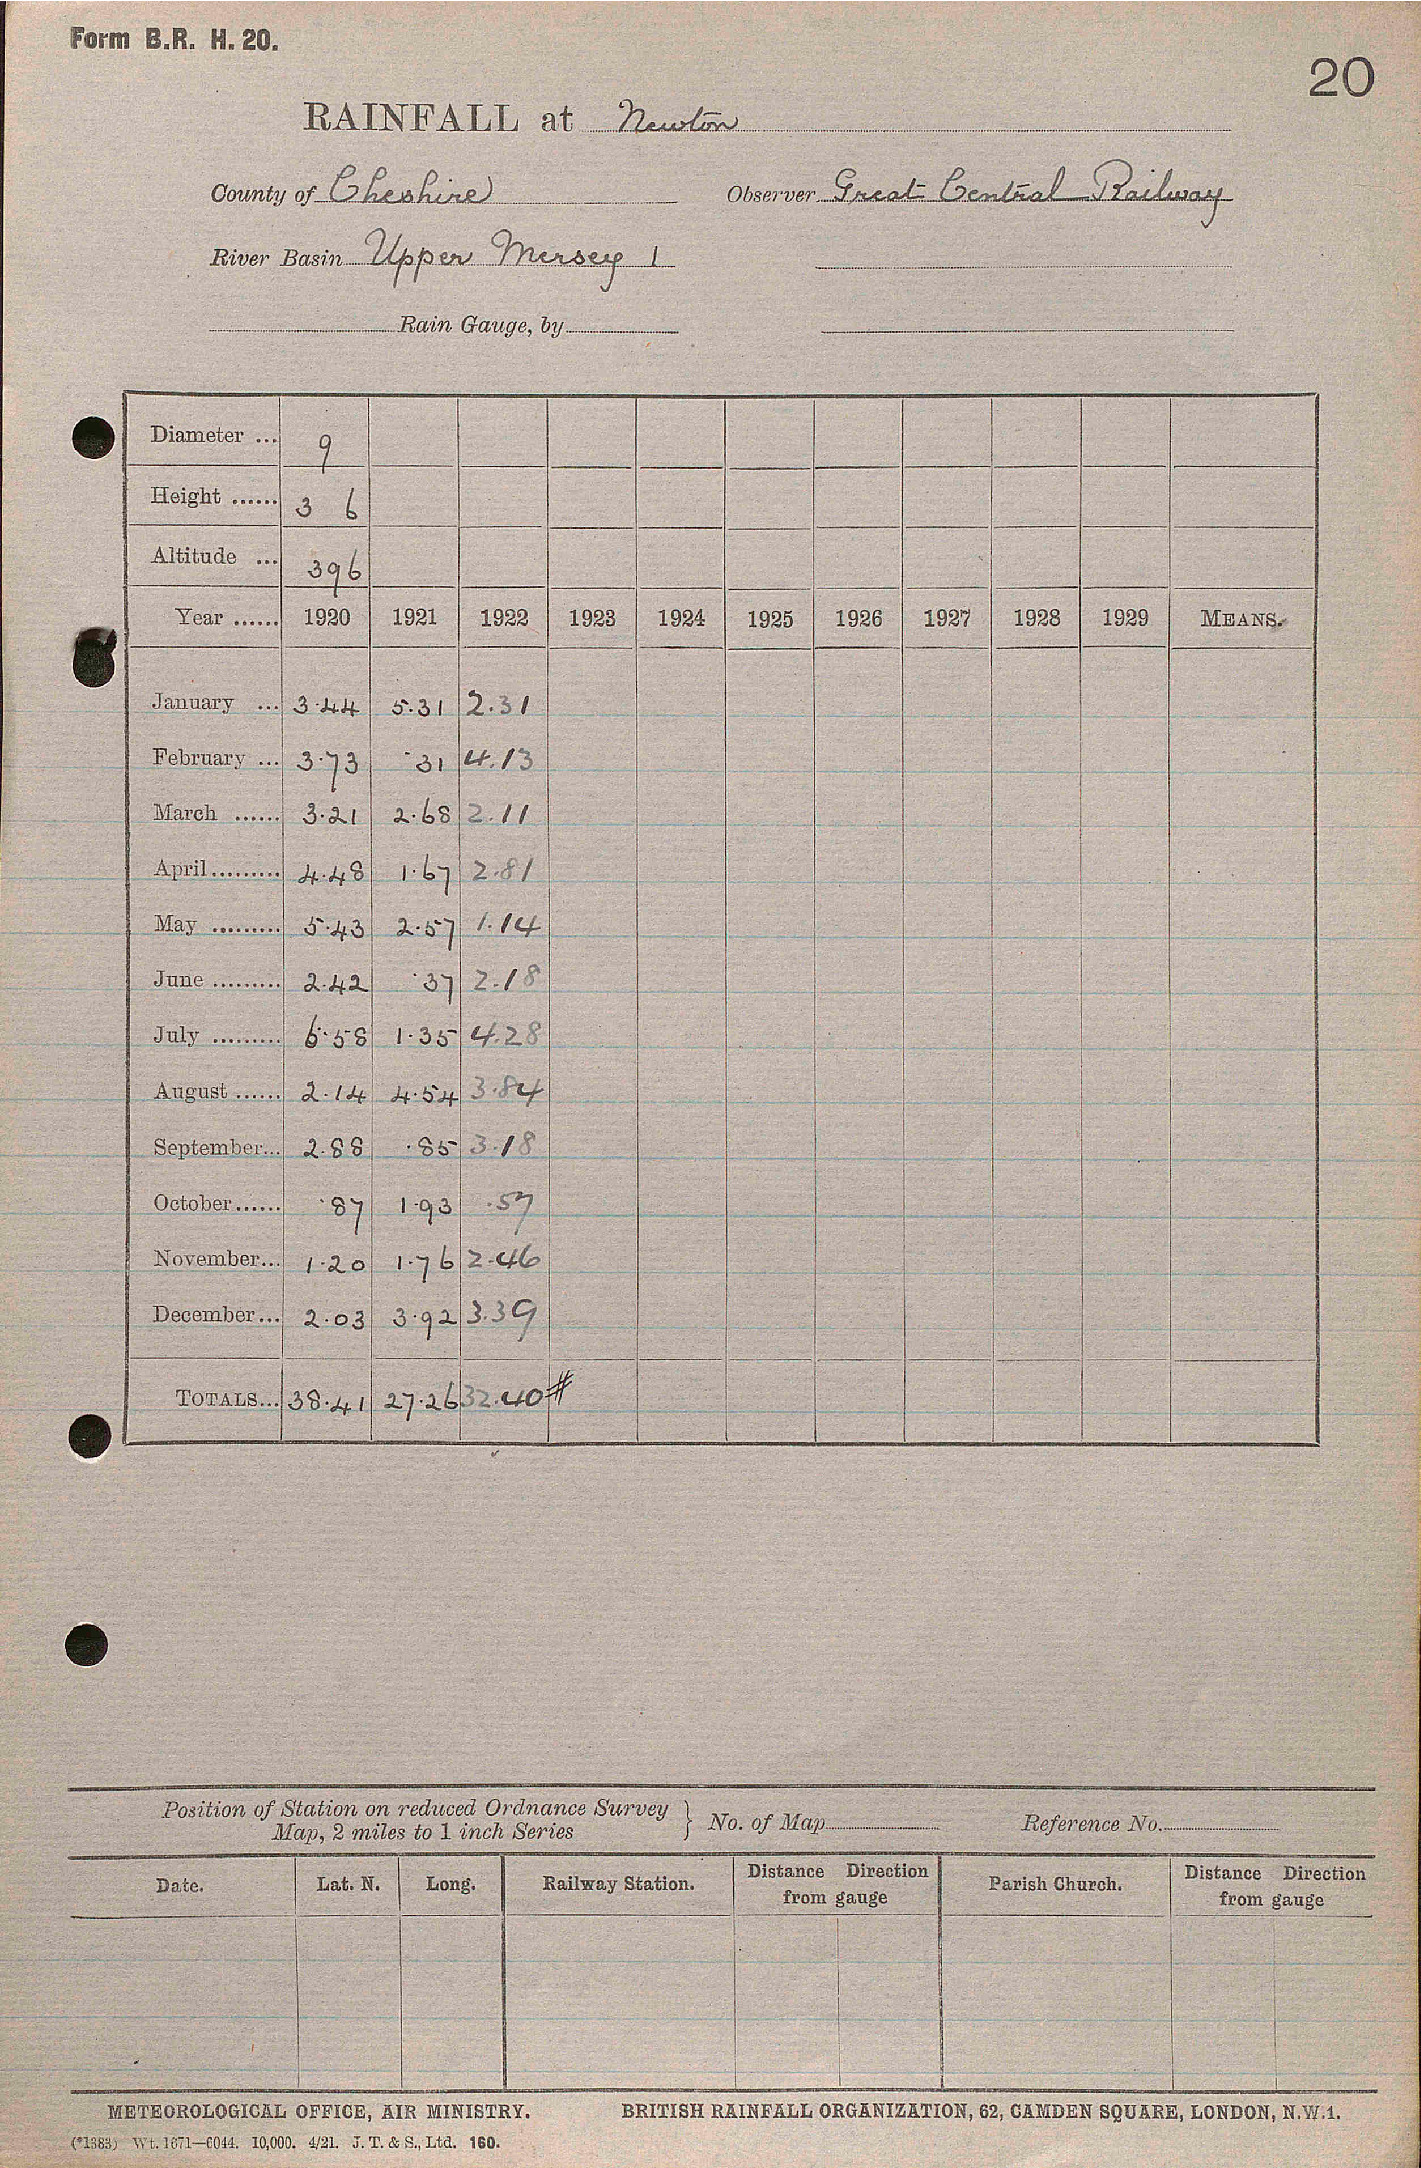 Form B.R. H. 20.
20
RAINFALL at Newton
County of Cheshire Observer Great Central Railway
River Basin Upper Mersey 1
Rain Gauge, by
Diameter ... 9
Height ...... 3 6
Altitude ... 396
Year ...... 1920 1921 1922 1923 1924 1925 1926 1927 1928 1929 MEANS.
January ... 3.44 5.31 2.31
February ... 3.73 .31 4.13
March ...... 3.21 2.68 2.11
April ......... 4.48 1.67 2.81
May ......... 5.43 2.57 1.14
June ......... 2.42 .37 2.18
July ......... 6.58 1.35 4.28
August ...... 2.14 4.54 3.84
September... 2.88 .85 3.18
October...... .87 1.93 .57
November... 1.20 1.76 2.46
December... 2.03 3.92 3.39
TOTALS... 38.41 27.26 32.40 #
Position of Station on reduced Ordnance Survey
Map, 2 miles to 1 inch Series } No. of Map Reference No.
Date. Lat. N. Long. Railway Station. Distance Direction from gauge Parish Church. Distance Direction from gauge
METEOROLOGICAL OFFICE, AIR MINISTRY. BRITISH RAINFALL ORGANIZATION, 62, CAMDEN SQUARE, LONDON, N.W.1.
(*1383) Wt. 1671—6044. 10,000. 4/21. J. T. & S., Ltd. 160.